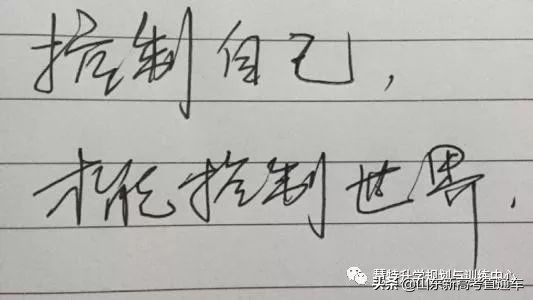 控制自己，
才能控制世界．
慧特升学规划与训练中心
头条@山东新高考直通车